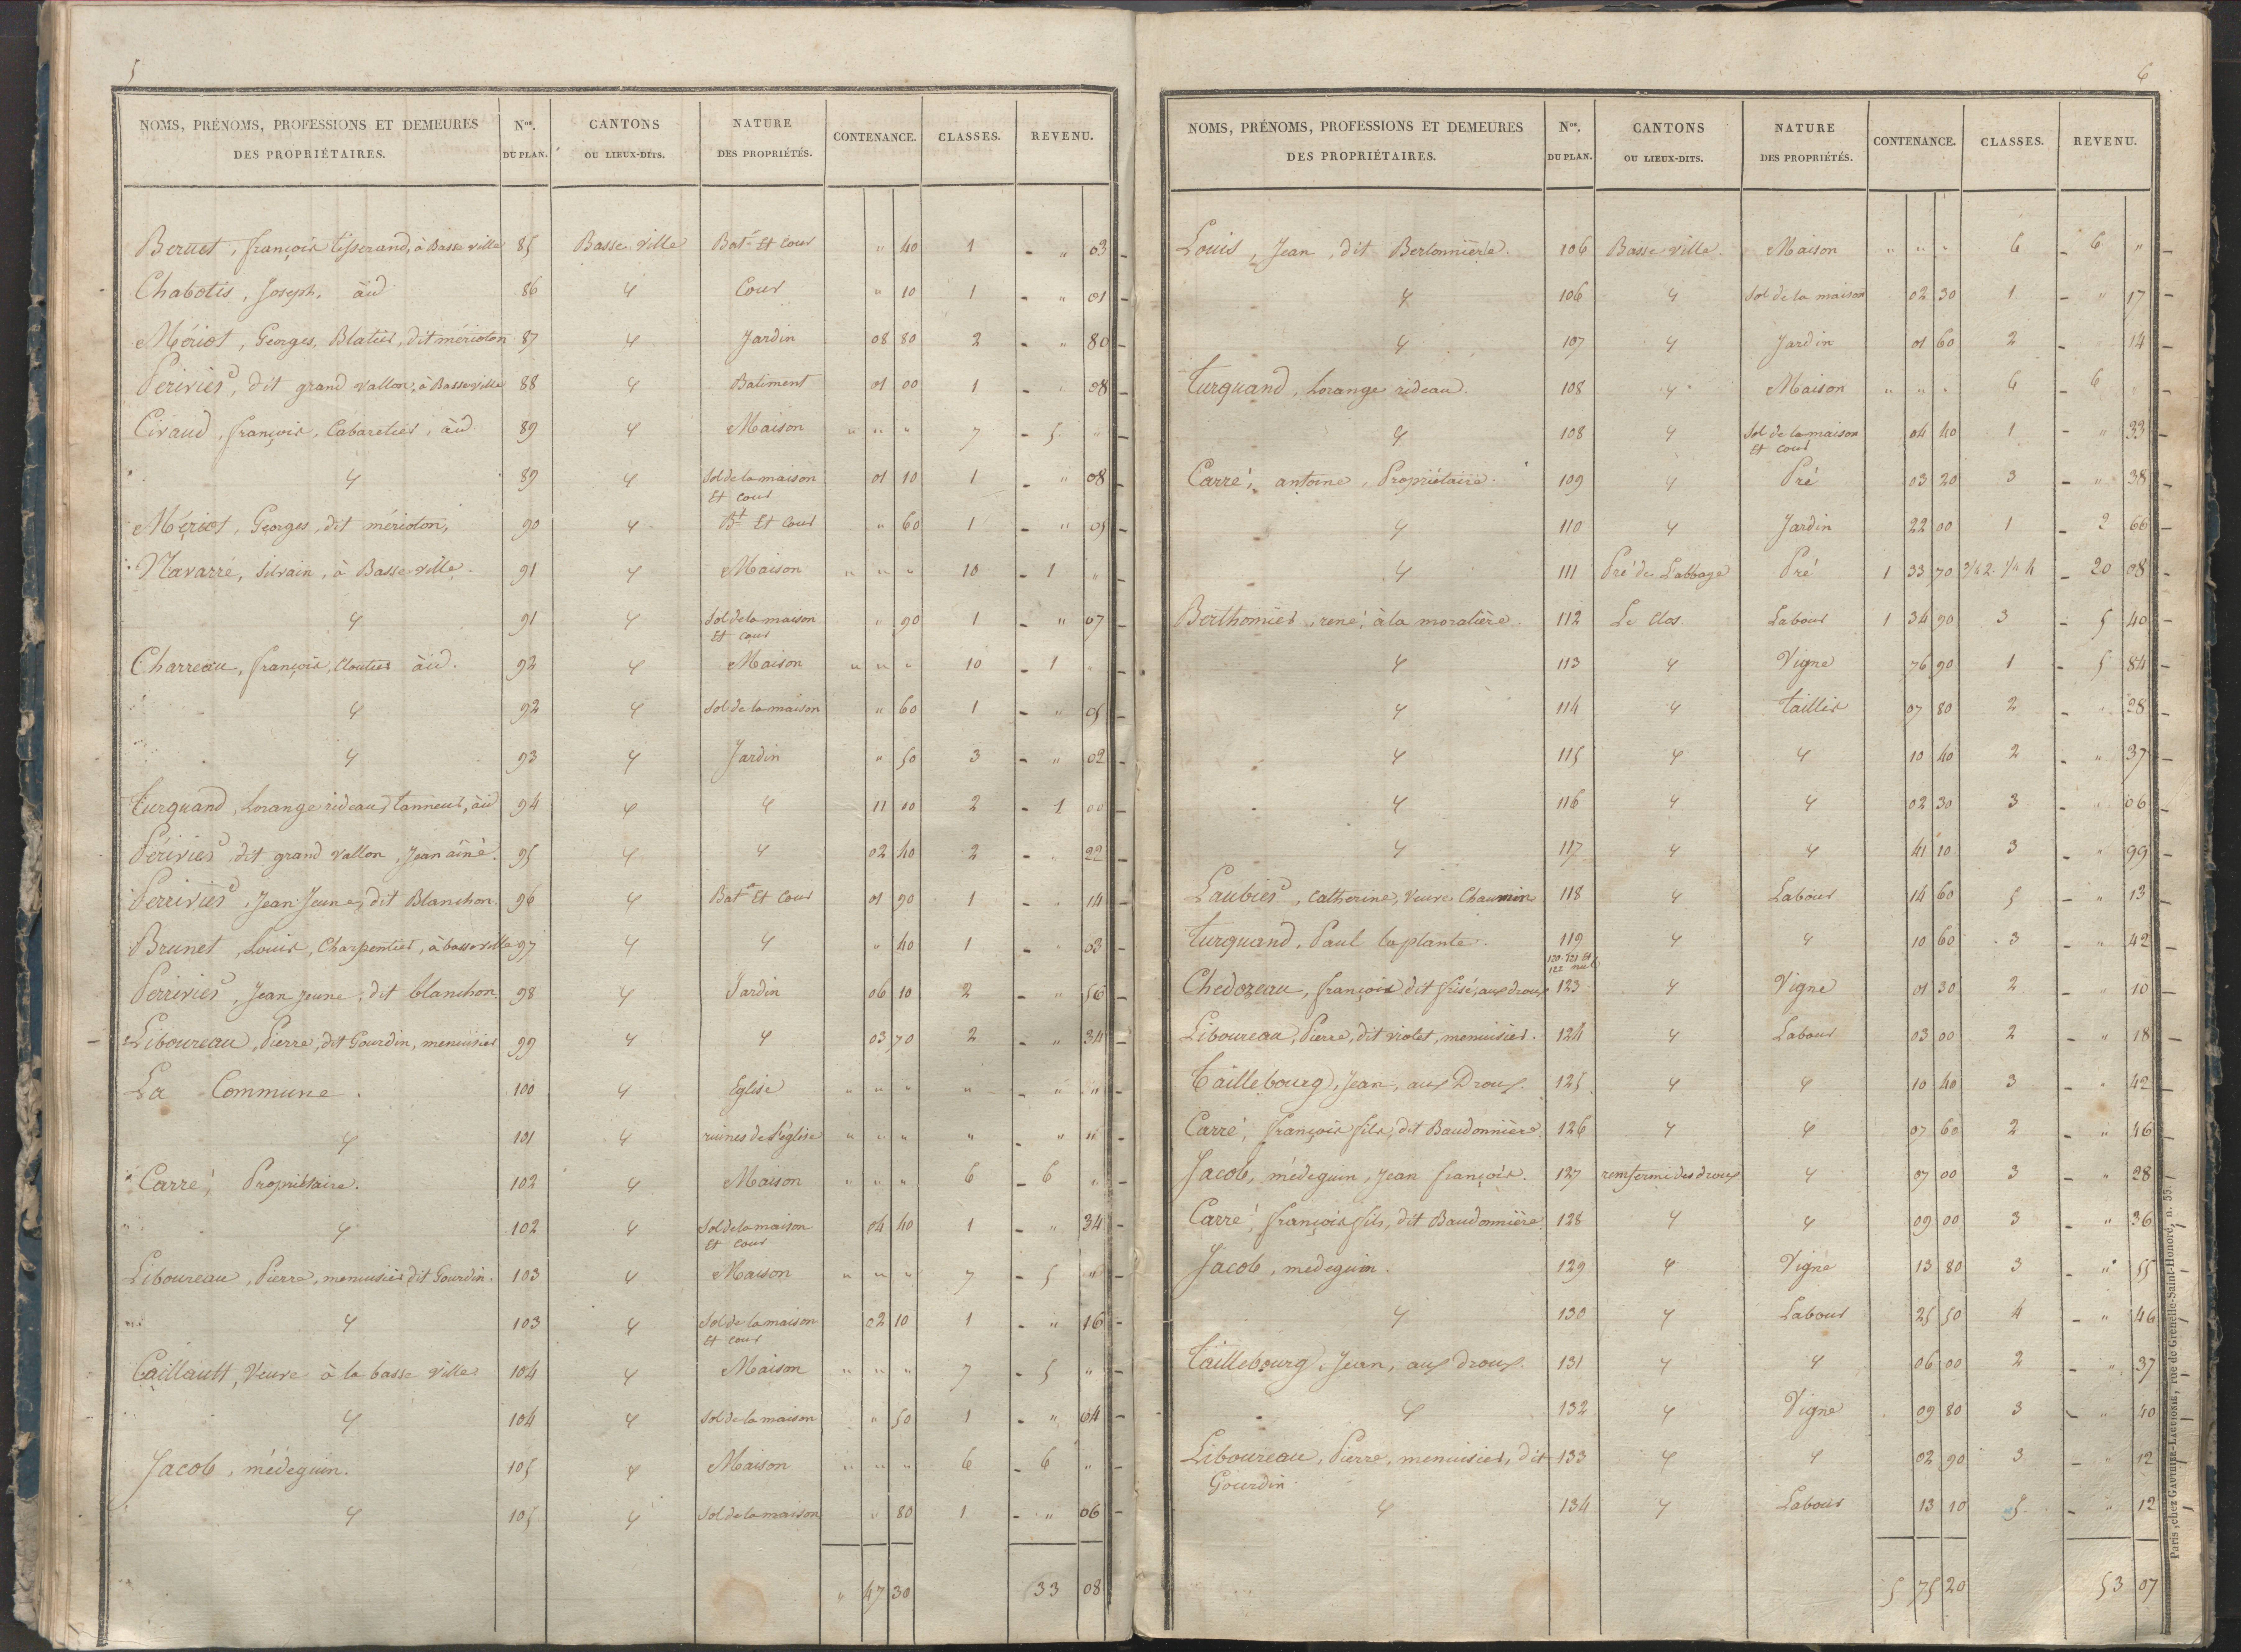 5
NOMS, PRÉNOMS, PROFESSIONS ET DEMEURES DES PROPRIÉTAIRES. Nos. DU PLAN. CANTONS OU LIEUX-DITS. NATURE DES PROPRIÉTÉS. CONTENANCE. CLASSES. REVENU.
Bernet, françois tisserand, à Basse ville 85 Basse ville Bat.t Et Cour " 40 1 - " 03
Chabotis, Joseph, aud 86 4 Cour " 10 1 - " 01
Mériot, Georges, Blatier, dit mérioton 87 4 Jardin 08 80 2 - " 80
Périvier, dit grand vallon, à Basseville 88 4 Batiment 01 00 1 - " 08
Ciraud, françois, Cabaretier, aud. 89 4 Maison " " " 7 - 5 "
4 89 4 Sol de la maison Et Cour 01 10 1 - " 08
Mériot, Georges, dit mérioton, 90 4 Bt Et Cour " 60 1 - " 05
Navarre, Silvain, à Basse ville. 91 4 Maison " " " 10 - 1 "
4 91 4 Sol de la maison Et cour " 90 1 - " 07
Charreau, françois, Cloutier aud. 92 4 Maison " " " 10 - 1 "
4 92 4 Sol de la maison " 60 1 - " 05
4 93 4 Jardin " 50 3 - " 02
Turquand, Lorange rideau, tanneur, aud 94 4 4 11 00 2 - 1 00
Périvier, dit grand vallon, Jean aîné. 95 4 4 02 40 2 - " 22
Perrivier, Jean Jeune, dit Blanchon. 96 4 Bat.t Et Cour 01 90 1 - " 14
Brunet, Louis, Charpentier, à basse ville 97 4 4 " 40 1 - " 03
Perrivier, Jean jeune, dit blanchon. 98 4 Jardin 06 10 2 - " 56
Liboureau, Pierre, dit Gourdin, menuisier 99 4 4 03 70 2 - " 34
La Commune. 100 4 Eglise " " " " - " "
4 101 4 ruines de l'église " " " " - " "
Carré, Propriétaire. 102 4 Maison " " " 6 - 6 "
4 102 4 Sol de la maison Et Cour 04 40 1 - " 34
Liboureau, Pierre, menuisier dit Gourdin. 103 4 Maison " " " 7 - 5 "
4 103 4 Sol de la maison Et cour 02 10 1 - " 16
Caillault, Veuve à la basse ville 104 4 Maison " " " 7 - 5 "
4 104 4 Sol de la maison " 50 1 - " 04
Jacob, médeguin. 105 4 Maison " " " 6 - 6 "
4 105 4 Sol de la maison " 80 1 - " 06
" 47 30 33 08
6
NOMS, PRÉNOMS, PROFESSIONS ET DEMEURES DES PROPRIÉTAIRES. Nos. DU PLAN. CANTONS OU LIEUX-DITS. NATURE DES PROPRIÉTÉS. CONTENANCE. CLASSES. REVENU.
Louis, Jean, dit Berlonnière. 106 Basse ville. Maison " " " 6 - 6 "
4 106 4 Sol de la maison 02 30 1 - " 17
4 107 4 Jardin 01 60 2 - 14
Turquand, Lorange rideau. 108 4 Maison " " " 6 - 6
4 108 4 Sol de la maison Et cour 04 40 1 - " 33
Carré, antoine, Propriétaire. 109 4 Pré 03 20 3 - " 38
4 110 4 Jardin 22 00 1 - 2 66
4 111 Pré de Labbaye Pré 1 33 70 3/4 2. 1/4 4 - 20 08
Berthomier, rené, à la moralière. 112 Le Clos Labour 1 34 90 3 - 5 40
4 113 4 Vigne 76 90 1 - 5 84
4 114 4 taillis 07 80 2 - " 28
4 115 4 4 10 40 2 - " 37
4 116 4 4 02 30 3 - " 06
4 117 4 4 41 10 3 - " 99
Laubier, Catherine, Veuve Chaumin 118 4 Labour 14 60 5 - " 13
Turquand, Paul laplante. 119 4 4 10 60 3 - " 42
120. 121 Et 122 nul
Chedozeau, françois dit frisé, aux droux 123 4 Vigne 01 30 2 " 10
Liboureau, Pierre, dit violet, menuisier. 124 4 Labour 03 00 2 - " 18
Taillebourg, Jean, aux Droux. 125 4 4 10 40 3 - " 42
Carré, françois fils, dit Baudonnière 126 4 4 07 60 2 - " 46
Jacob, médeguin, Jean françois. 127 remfermi des droux 4 07 00 3 - " 28
Carré, françois fils, dit Baudonnière. 128 4 4 09 00 3 - " 36
Jacob, médeguin. 129 4 Vigne 13 80 3 - " 55
4 130 4 Labour 25 50 4 - " 46
Taillebourg, Jean, aux droux. 131 4 4 06 00 2 - " 37
4 132 4 Vigne 09 80 3 - " 40
Liboureau, Pierre, menuisier, dit 133 4 4 02 90 3 - " 12
Gourdin
4 134 4 Labour 13 10 5 - " 12
5 75 20 53 07
Paris, chez Gauthier-Laguionie, rue de Grenelle-Saint-Honoré, n. 55.